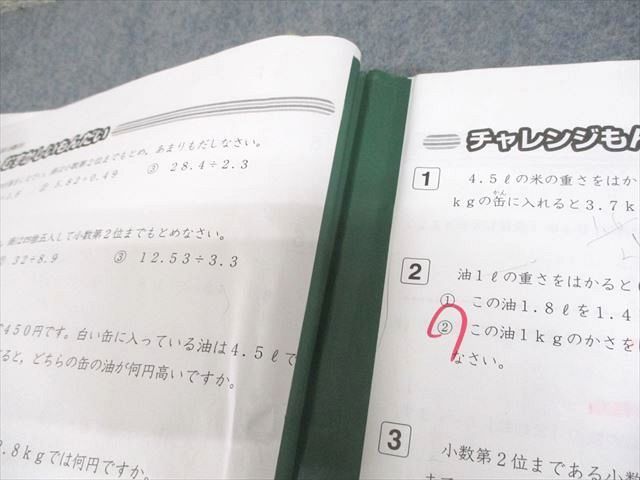 小数第2位までもとめ，あまりもだしなさい。
② 5.82÷0.49 ③ 28.4÷2.3
四捨五入して小数第2位までもとめなさい。
32÷8.9 ③ 12.53÷3.3
450円です。白い缶に入っている油は4.5ℓで
ると，どちらの缶の油が何円高いですか。
.8kgでは何円ですか。
チャレンジも
1 4.5ℓの米の重さをはか
かん
kgの缶に入れると3.7k
2 油1ℓの重さをはかると
① この油1.8ℓを1.4
② この油1kgのかさを
なさい。
3 小数第2位まである小